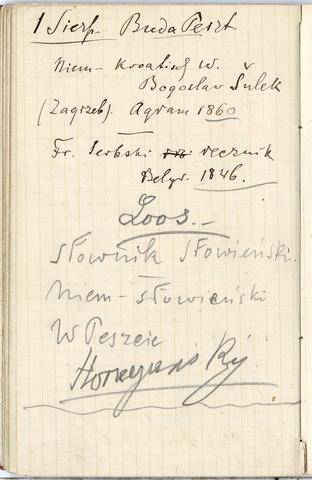 1 Sierp. Buda Peszt
Niem- kroatisch w.
Bogoslav Šulek
(Zagrzeb). Agram 1860
Fr. Serbski recznik
Belgr. 1846.
Loos.-
Słownik Słowieński.
Niem-słowieński
W Peszcie